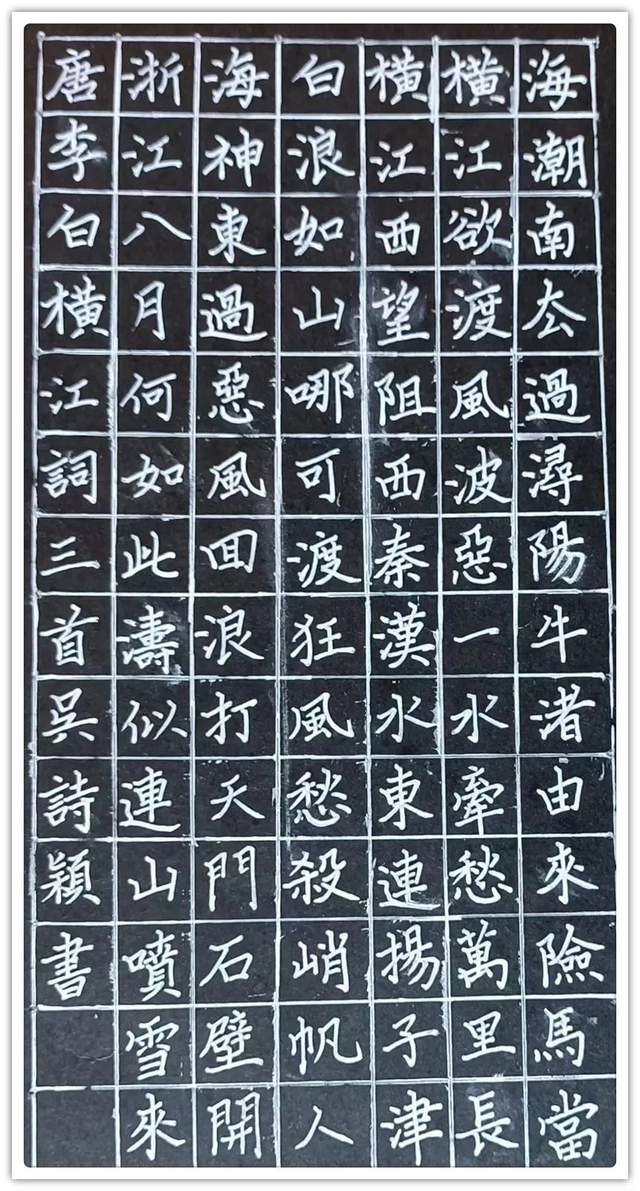 海潮南厺過潯陽牛渚由來險馬當
橫江欲渡風波惡一水牽愁萬里長
橫江西望阻西秦漢水東連揚子津
白浪如山哪可渡狂風愁殺峭帆人
海神東過惡風回浪打天門石壁開
浙江八月何如此濤似連山噴雪來
唐李白橫江詞三首吳詩穎書